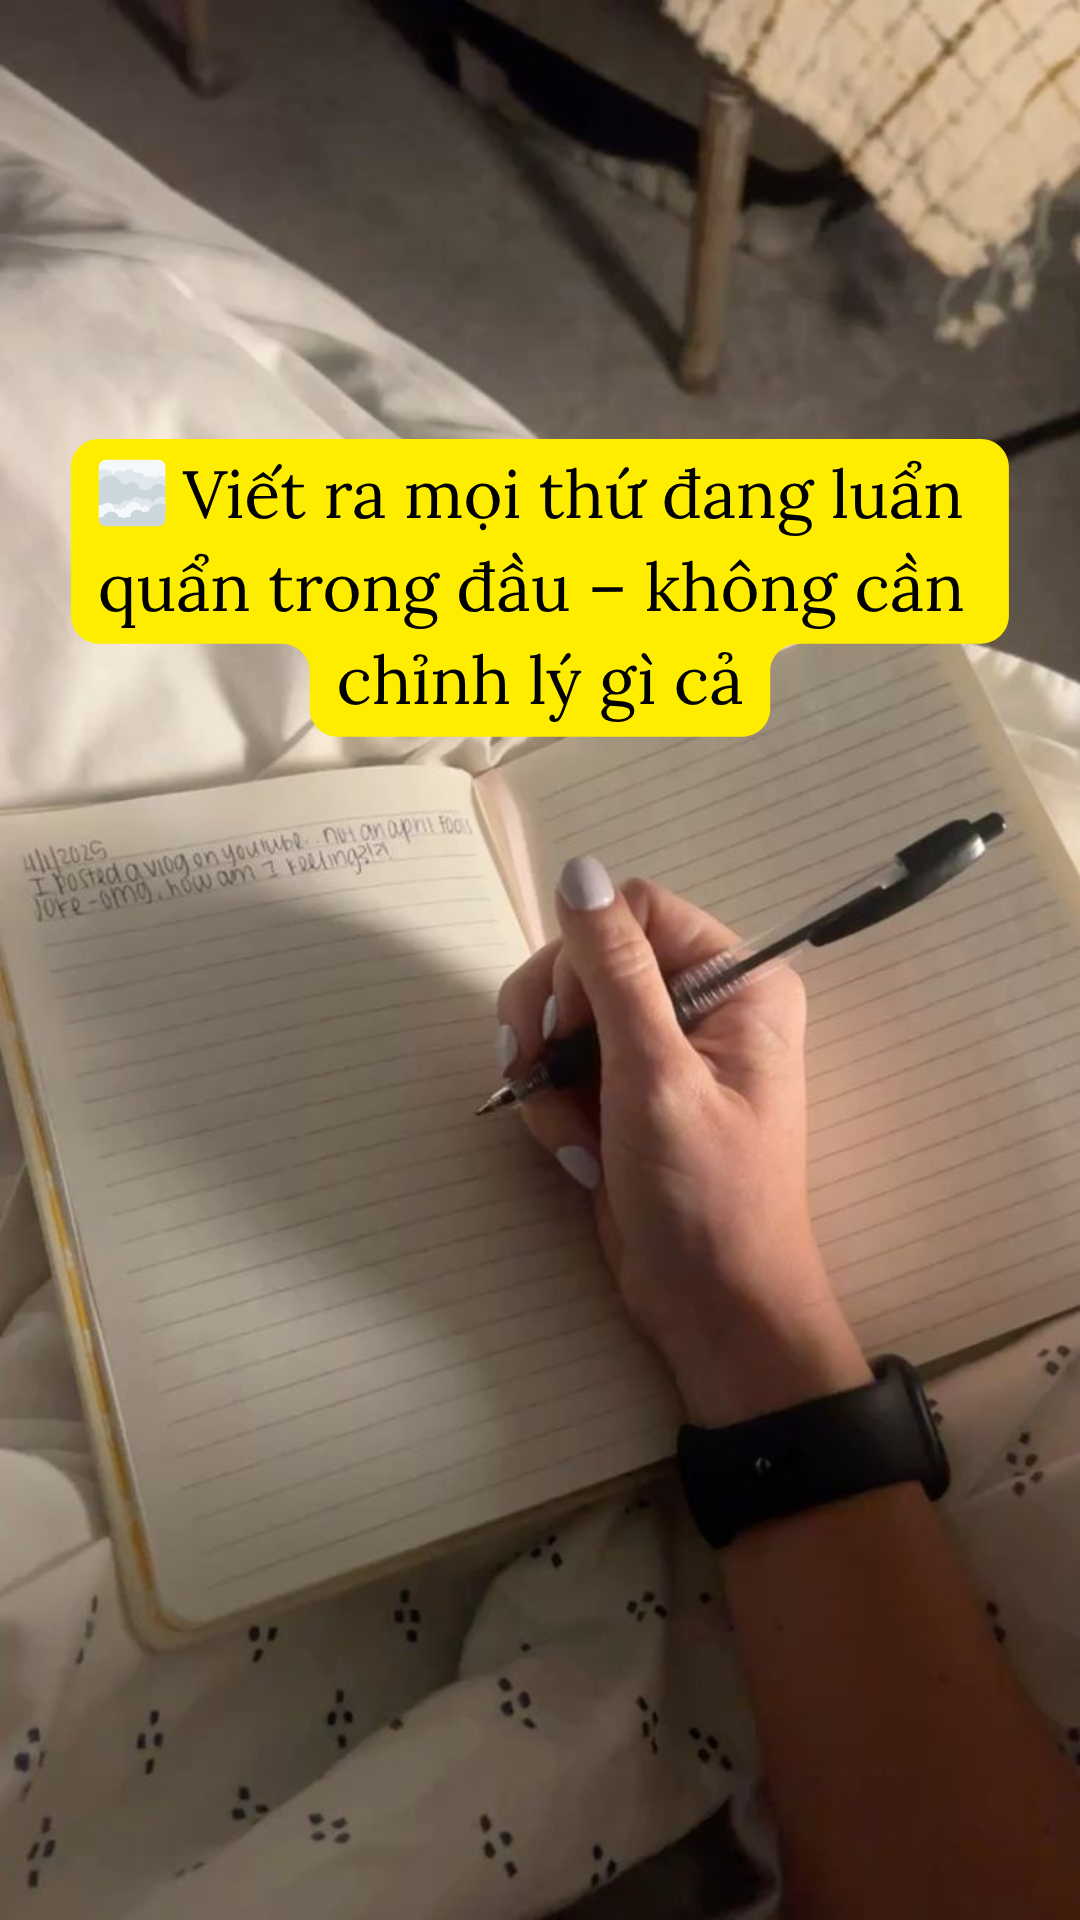 🌫️ Viết ra mọi thứ đang luẩn
quẩn trong đầu – không cần
chỉnh lý gì cả
4/1/2025
I posted a vlog on youtube.. not an april fools
joke - omg, how am I feeling?!?!